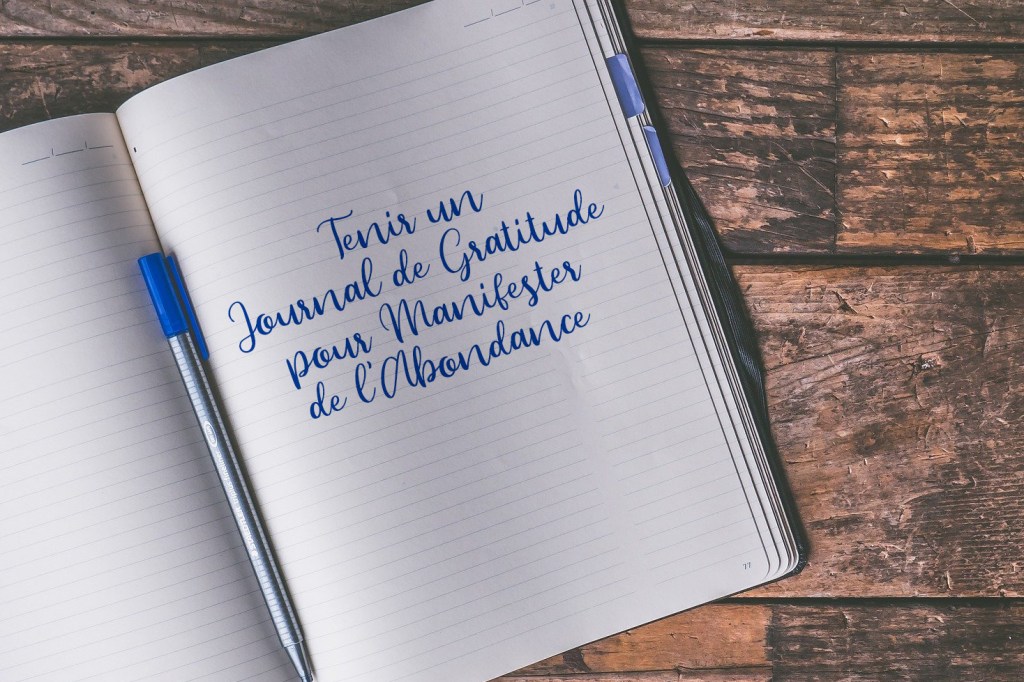 Tenir un
Journal de Gratitude
pour Manifester
de l'Abondance
77